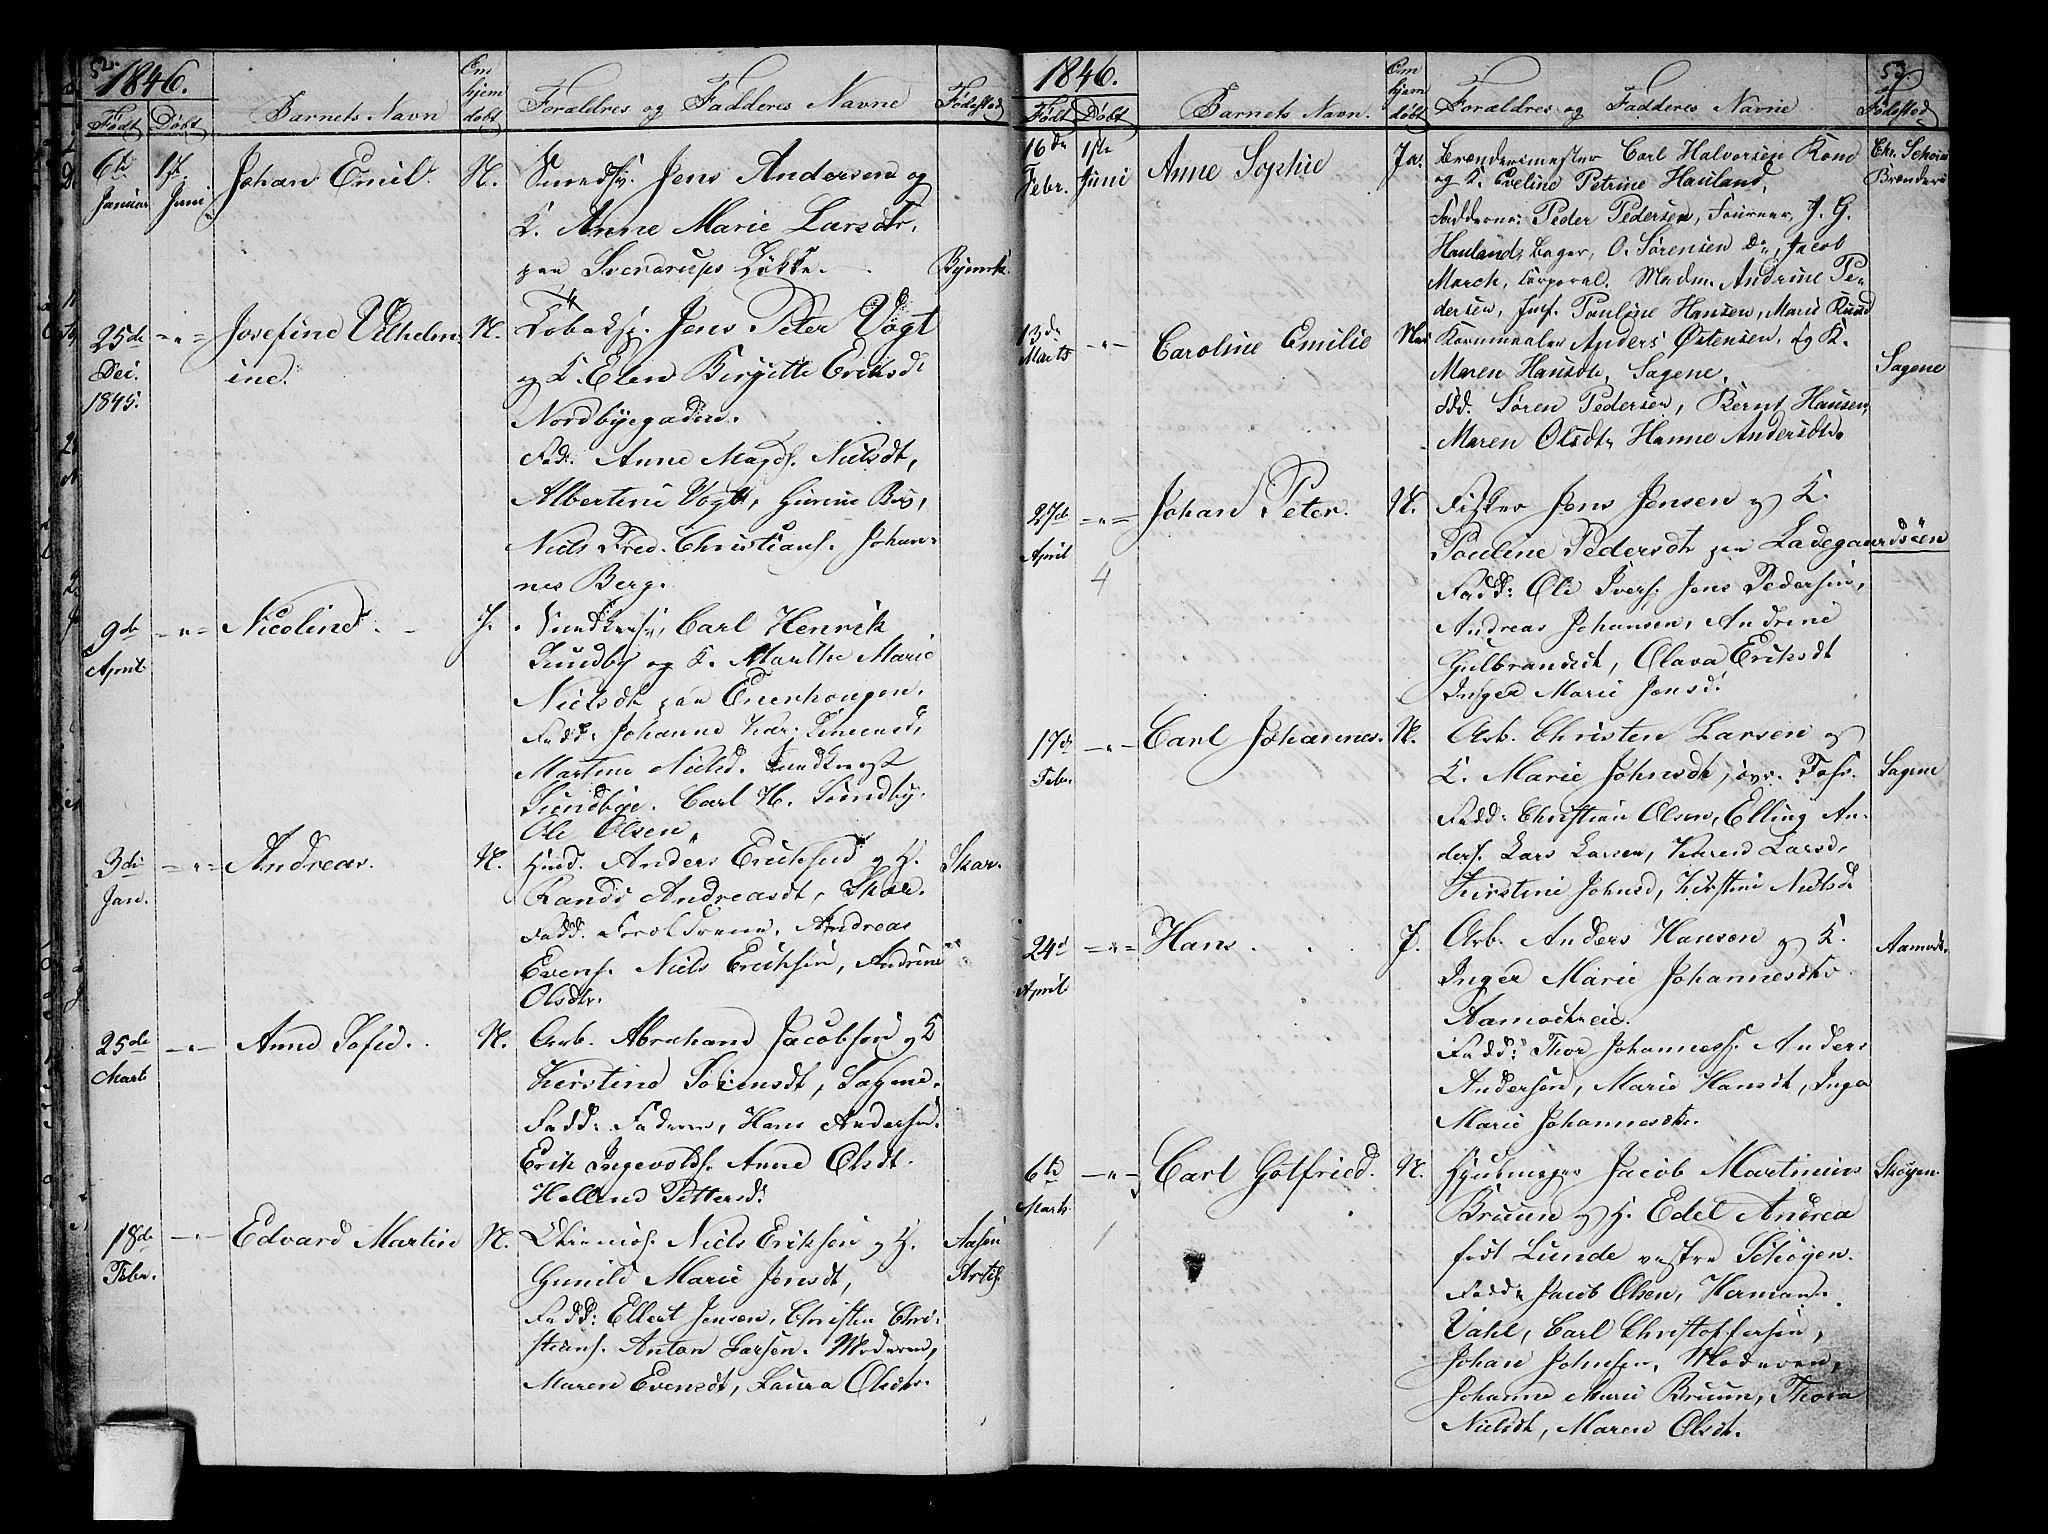 52.
1846.
Født Døbt Barnets Navn Om hjem døbt Forældres og Fadderes Navne Fødested
6te Januar 1ste Juni Johan Emil. N. Smedsv. Jens Andersen og
K. Anne Marie Larsdtr.
paa Svendrups Løkke. Bymrk.
25de Dec. 1845. Josefine Vilhelm- N. Tobaksp. Jens Peter Vogt
ine. og K. Elen Birgitte Eriksd.
Nordbyegaden.
Fad. Anne Magd. Nielsdt,
Albertine Vogt, Gurine Berg,
Niels Fred. Christians. Johan-
nes Berg.
9de April Nicoline. J. Carl Henrik
Sundby og K. Marthe Marie
Nielsdt paa Enerhougen.
Fadd: Johanne Kar. Simensd,
Martine Nielsd.
Sundbye. Carl H. Sundby.
Ole Olsen.
3die Jan. Andreas. N. Huusd. Anders Eriksen og H.
Randi Andreasdt, Skar. Skar.
Fadd. Forældrene, Andreas
Evens. Niels Eriksen, Andrine
Olsdtr.
25de Marts Anne Sofie. N. Arb. Abraham Jacobsen og K
Kirstine Sørensdt, Sagene.
Fadd: Faderen, Hans Andersen.
Erik Ingevolds. Anne Olsdt.
Hellene Pettersd.
18de Febr. Edvard Martin N. Niels Eriksen og H. Aasen
Gunild Marie Jensdt,
Fadd: Ellert Jensen, Christen Chri-
stians. Anton Larsen. Moderen,
Maren Evensdt, Laura Olsdtr.
53.
1846.
Født Døbt Barnets Navn. Om hjem døbt Forældres og Fadderes Navne Fødested
16de Febr. 1ste Juni Anne Sophie Ja. Brændermester Carl Halvorsen
og K. Eveline Petrine Hauland,
Fadderne: Peder Pedersen, J. G.
Hauland, Bager, O. Sørensen Do, Jacob
March, Corporal. Madm. Andrine Pe-
dersen, Jmf. Pauline Hansen, Marie Ruud
13de Marts Caroline Emilie Nei Kornmaaler Anders Østensen, og K. Sagene
Maren Hansdtr, Sagene.
Fdd. Søren Pedersen, Bernt Hansen,
Maren Olsdt, Hanne Andersdtr.
27de April Johan Peter. N. Fisker Jens Jensen og K.
Pauline Pedersdtr paa Ladegaardsøen
4 Fadd: Ole Ivers. Jens Pedersen,
Andreas Johansen, Andrine
Gulbrandsdt, Olava Eriksdt
Inger Marie Jensd.
17de Febr. Carl Johannes. N. Arb. Christen Larsen og
K. Marie Johnsdtr, øvr. Foss. Sagene
Fadd: Christian Olsen, Elling An-
ders. Lars Larsen, Karen Larsd,
Kirstine Johnsd, Kirstine Nielsd
24de April Hans. J. Arb. Anders Hansen og K. Aamodt.
Inger Marie Johannesdtr
Aamodtveie.
Fadd: Thor Johanness. Anders
Andersen, Marie Hansdt, Inga
Marie Johannesdtr.
6te Marts Carl Gotfried. N. Hjulmager Jacob Martinius Skøyen
Bruun og H. Edel Andrea
1 født Lunde vestre Schøgen.
Fadd: Jacob Olsen, Herman
Vahl, Carl Christoffersen,
Johan Johnsen, Moderen,
Johanne Marie Bruun, Thora
Nielsdt, Maren Olsdt.